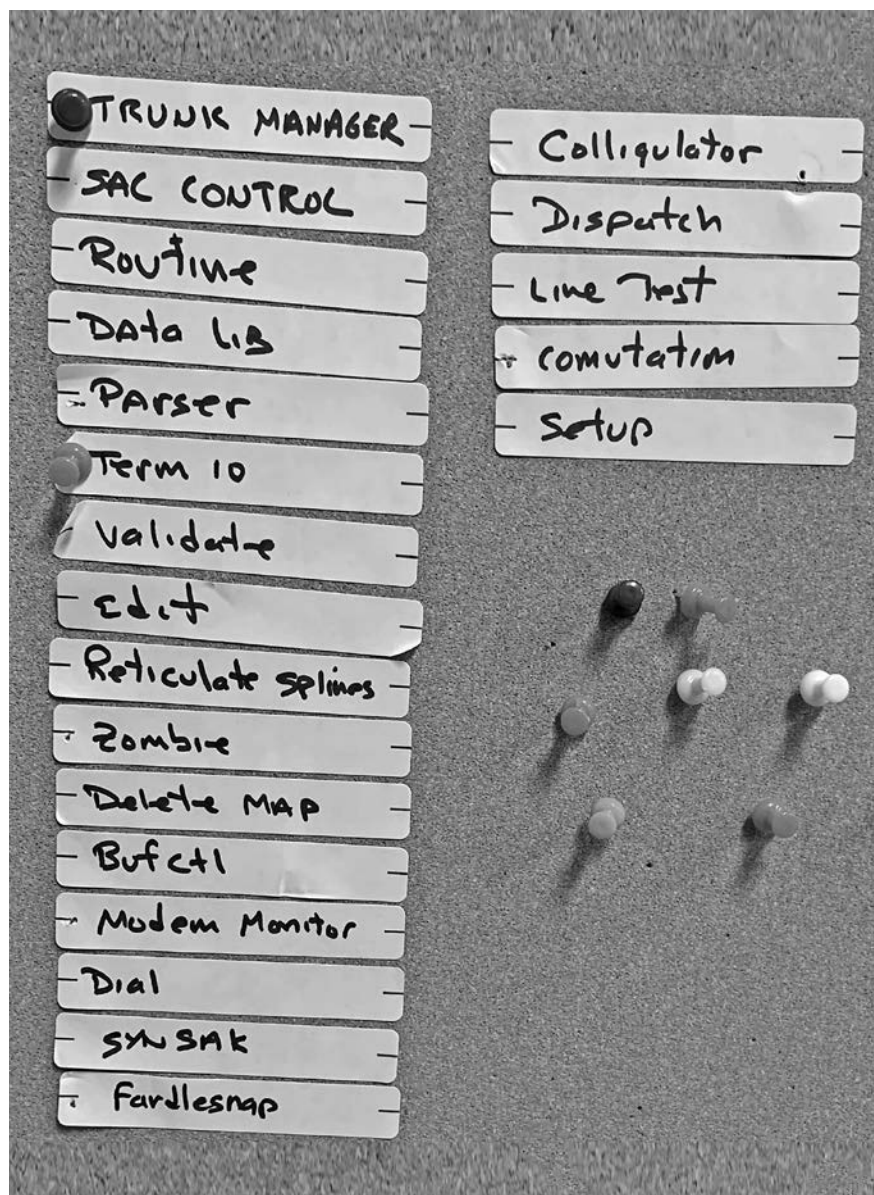 TRUNK MANAGER
SAC CONTROL
Routine
DAta LIB
PArser
Term IO
Validate
Edit
Reticulate Splines
Zombie
Delete MAP
Bufctl
Modem Monitor
Dial
SYNSAK
Fardlesnap
Colliqulator
Dispatch
Line Test
Comutation
Setup